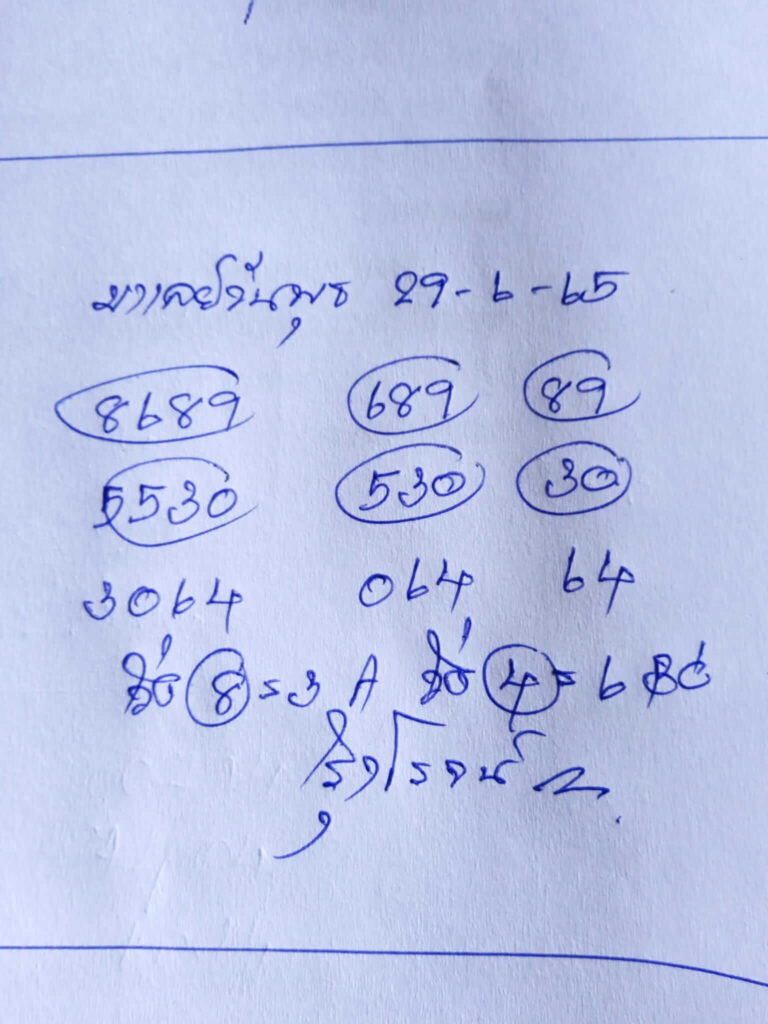 มาเลย์วันพุธ 29-6-65
8689 689 89
5530 530 30
3064 064 64
8=3 A 4=6 BC
รุ่งโรจน์